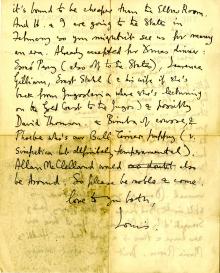 it's bound to be cheaper than the Elton Room.
And H. & I are going to the States in
February so you mightn't see us for many
an era. Already accepted for Xmas dinner:
Song Party (also off to the States), Laurence
Gilliam, Scott Stahl (& his wife if she's
back from Jugoslavia where she's lecturing
on the Gold Coast to the Jugos) & possibly
David Thomson. & Bimba of course, &
Phoebe who's our Bull Terrier puppy (v.
simpatica but definitely temperamental).
Allan McClelland would also
be around. So please be noble & come.
Love to you both,
Louis.